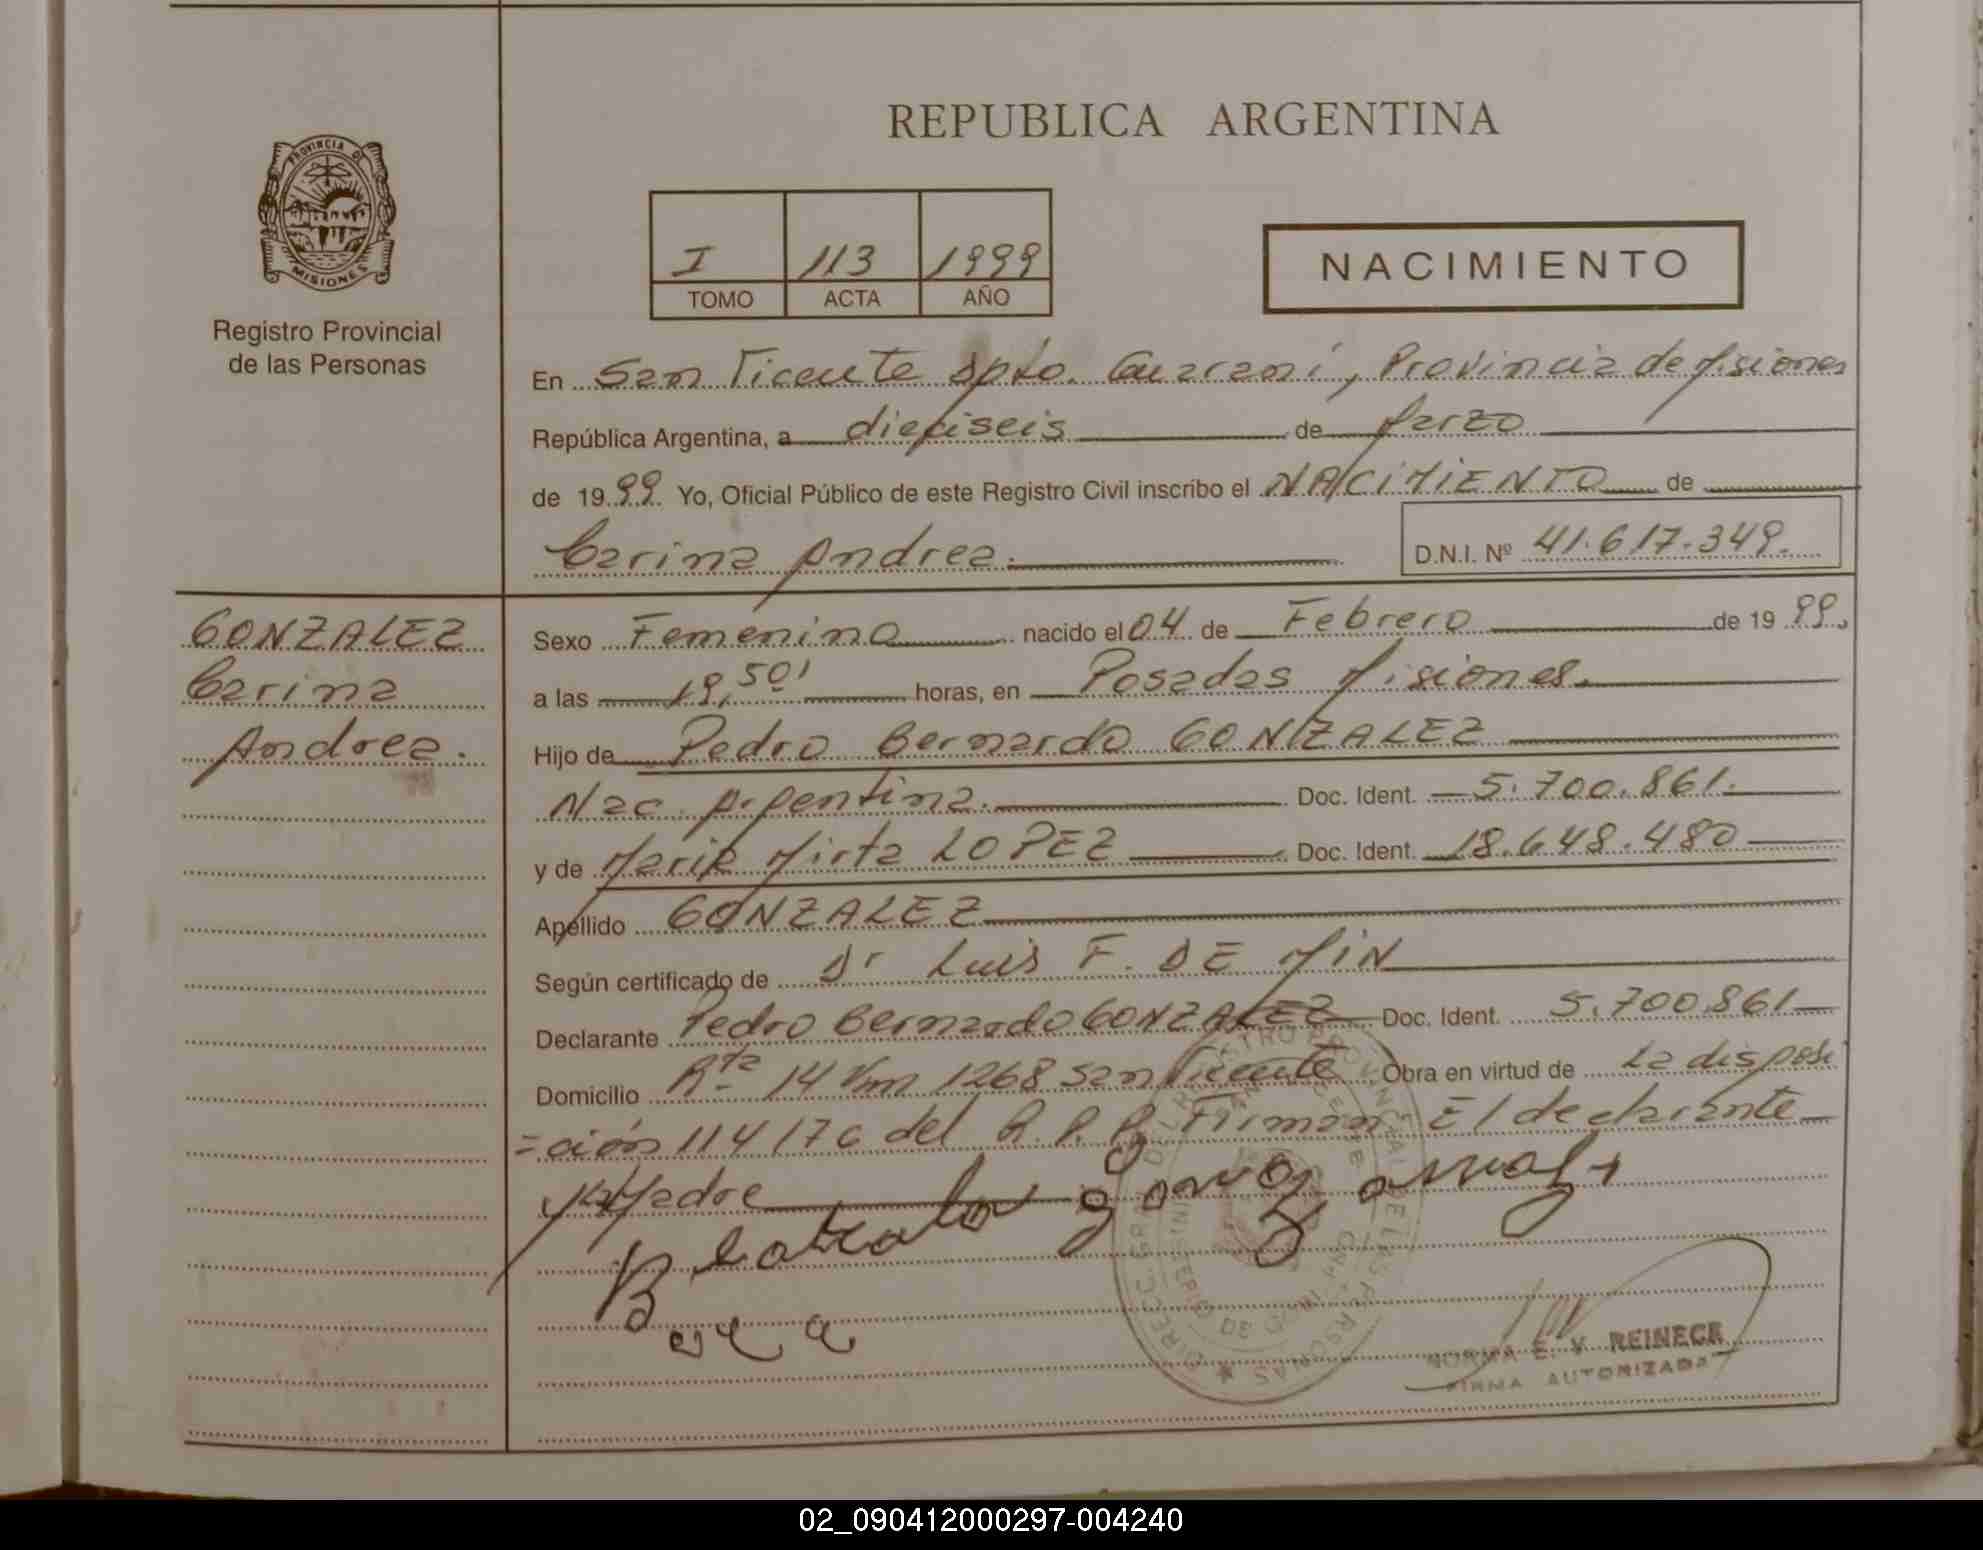 REPUBLICA ARGENTINA
PROVINCIA DE
MISIONES
Registro Provincial
de las Personas
I 113 1999
TOMO ACTA AÑO
NACIMIENTO
En San Vicente Dpto. Guarani, Provincia de Misiones
República Argentina, a dieciseis de Marzo
de 1999 Yo, Oficial Público de este Registro Civil inscribo el NACIMIENTO de
Carina Andrea. D.N.I. Nº 41.617.349.
GONZALEZ
Carina
Andrea.
Sexo Femenino nacido el 04 de Febrero de 1999.
a las 19,50' horas, en Posadas Misiones.
Hijo de Pedro Bernardo GONZALEZ
Nac. Argentina. Doc. Ident. 5.700.861.
y de Maria Mirta LOPEZ Doc. Ident. 18.648.480
Apellido GONZALEZ
Según certificado de Dr Luis F. DE MIN
Declarante Pedro Bernardo GONZALEZ Doc. Ident. 5.700.861
Domicilio Rta 14 Km 1268 San Vicente Obra en virtud de La disposi
=ción 114/76 del R.P.P. Firman El declarante
y la Madre
NORMA E. V. REINECK
FIRMA AUTORIZADA
02_090412000297-004240